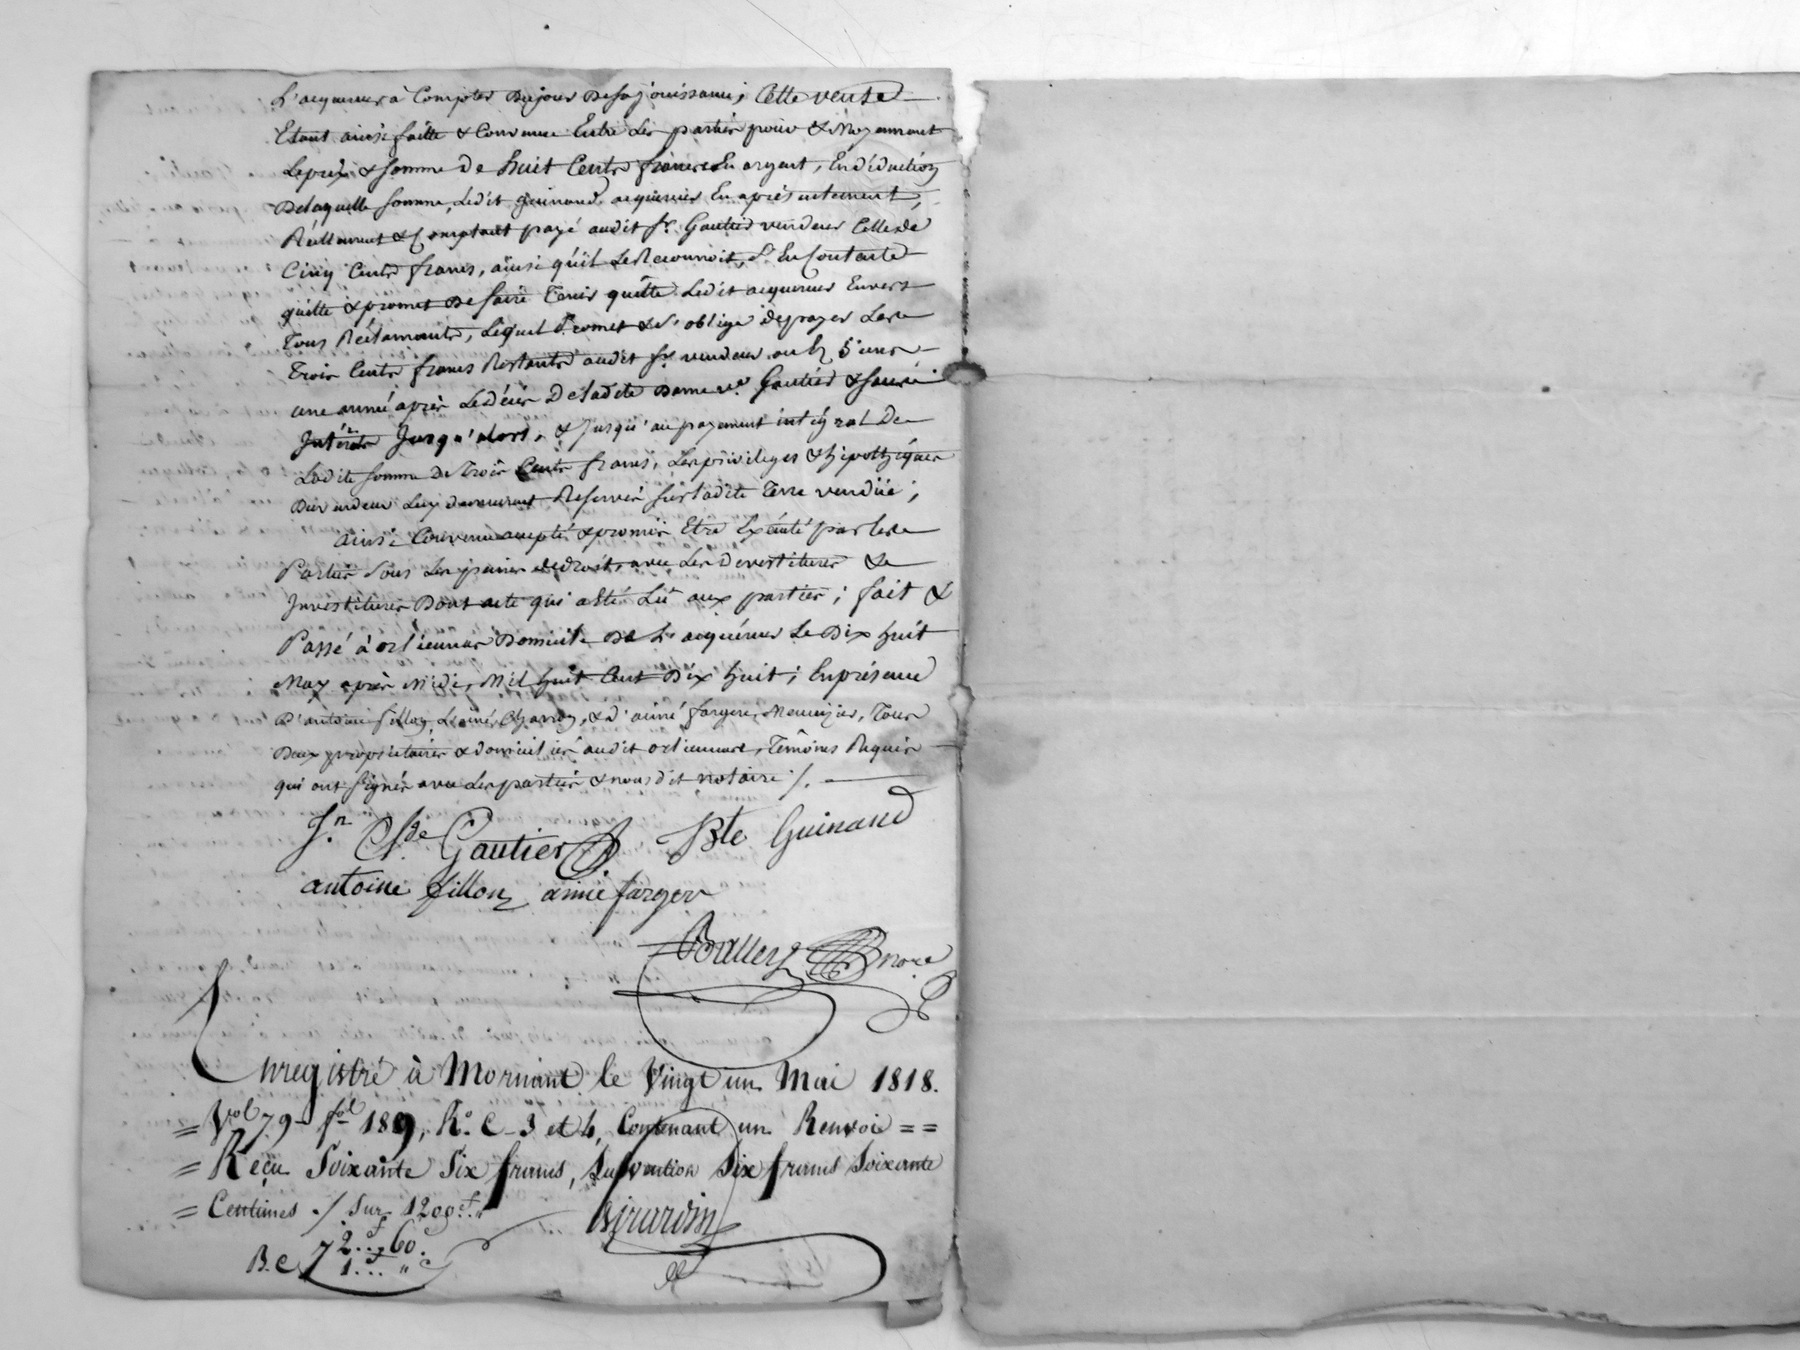 L'acquereur à Compter du jour de sa jouissance, Cette vente
Etant ainsi faitte & Convenue Entre les parties pour & Moyennant
Le prix & somme de huit Cents francs En argent, En déduction
De laquelle somme, Ledit guinand acquereur En a présentement,
Réellement & Comptant payé audit sr. Gautier vendeur Celle de
Cinq Cents francs, ainsi qu'il Le Reconnoit, s'En Contente
quitte & promet de faire Tenir quitte Ledit acquereur Envers
Tous Réclamants, Lequel Promet & s'oblige de payer Les
Trois Cents francs Restants audit sr. vendeur ou h
une année après Le décès De ladite Dame ve. Gautier & sans
Intérêts Jusqu'alors, & jusqu'au payement intégral De
Ladite somme De Trois Cents francs, Les privileges & hipothéques
Du vendeur Luy demeurent Reservés sur ladite Terre vendüe;
ainsi Convenu accepté & promis Etre Exécuté par les
Parties sous Les peines de droit, avec Les Devestitures &
Investitures Dont acte qui a Eté Lû aux parties; fait &
Passé à orliennas Domicile De L'acquéreur Le Dix huit
May après Midi, Mil huit Cent Dix huit; En présence
D'antoine fillon, Charron, & d'aimé fargere, Menuizier, Tous
Deux propriétaires & domiciliés audit orliennas, Témoins Requis
qui ont signés avec Les parties & nous dit notaire /.
Jn. Cde Gautier Bte Guinand
antoine fillon aimé farger
nore
Enregistré à Mornant le Vingt un Mai 1818.
= Vol 79 fol 189, Ro. C. 3 et 4, Contenant un Renvoi = =
= Reçu Soixante Six francs, Subvention Six francs Soixante
= Centimes ./ Sur 1200f. Girardin
72f..60c
B. C 1f... "c